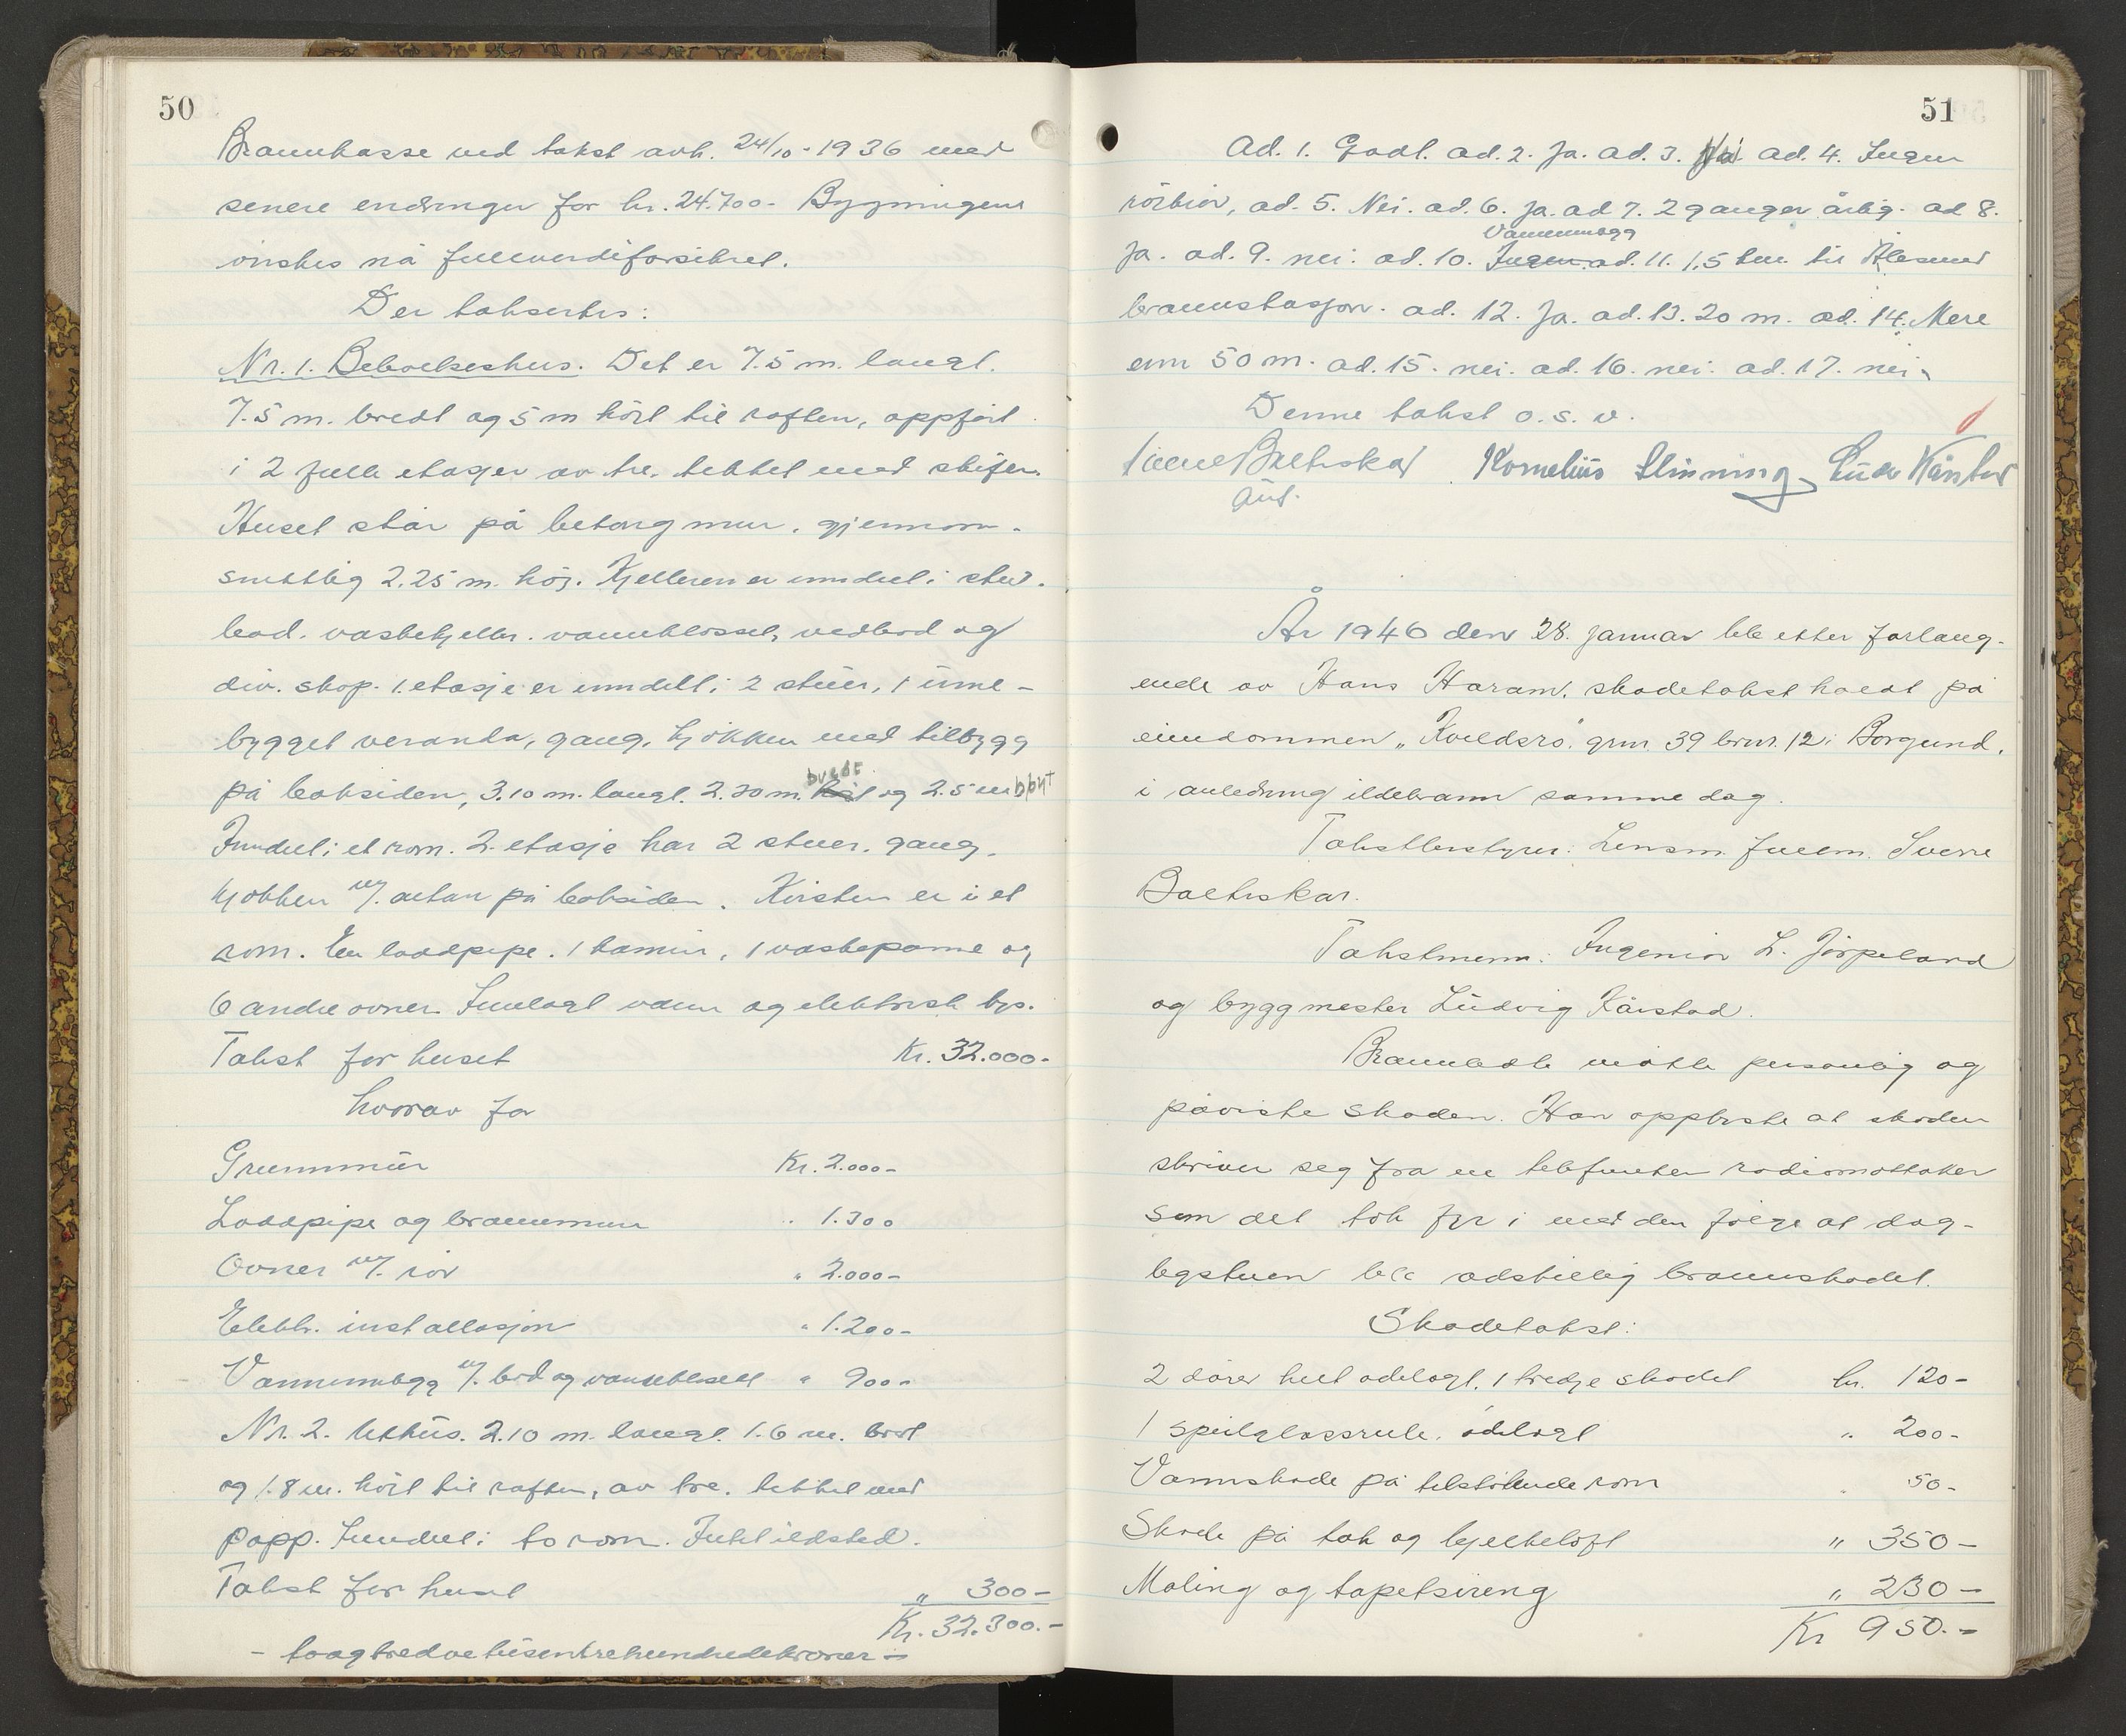 50
Brannkasse ved takst avh. 24/10-1936 med
senere endringer for kr. 24.700- Bygningene
ønskes nå fullverdiforsikret.
Der taksertes:
Nr. 1. Beboelseshus. Det er 7.5 m. langt.
7.5 m. bredt og 5 m høit til raften, oppført
i 2 fulle etasjer av tre. tekket med skifer.
Huset står på betong mur. gjennom-
snittlig 2.25 m. høg. Kjelleren er inndelt i stue.
bad. vaskekjeller. vannklosset, vedbod og
div. skap. 1. etasje er inndelt i 2 stuer, 1 inne-
bygget veranda, gang, kjøkken med tilbygg
på baksiden, 3.10 m. langt. 2.30 m. bredt og 2.5 m høyt
Inndelt i et rom. 2. etasje har 2 stuer. gang.
kjøkken m/. altan på baksiden. Kvisten er i et
rom. En laadpipe. 1 kamin, 1 vaskepanne og
6 andre ovner. Innlagt vann og elektrisk lys.
Takst for huset Kr. 32.000-
hvorav for
Grunnmur Kr. 2.000-
Laadpipe og brannmur " 1.300
Ovner m/. rør " 2.000-
Elektr. installasjon " 1.200-
Vanninnlegg m/. bad og vannklosett " 900-
Nr. 2. Uthus. 2.10 m. langt. 1.6 m. bredt
og 1.8 m. høit til raften, av tre. tekket med
papp. Inndelt i to rom. Intet ildsted.
Takst for huset " 300-
Kr. 32.300.-
- toogtredvetusentrehundredekroner -
51
Ad. 1. Godt. ad. 2. Ja. ad. 3. Nei ad. 4. Ingen
rørbior, ad. 5. Nei. ad. 6. Ja. ad 7. 2 ganger årlig. ad 8.
Vanninnlegg
Ja. ad. 9. nei. ad. 10. Ingen. ad. 11. 1,5 km. til Ålesund
brannstasjon. ad. 12. Ja. ad. 13. 20 m. ad. 14. Mere
enn 50 m. ad. 15. nei. ad. 16. nei. ad. 17. nei.
Denne takst o. s. v.
Sverre Balteskar Kornelius Slinning Ludv Kårstad
År 1946 den 28. januar ble etter forlang-
ende av Hans Haram, skadetakst holdt på
eiendommen "Kveldsro" gnr. 39 brnr. 12 i Borgund,
i anledning ildebrann samme dag.
Takstbestyrer: Lensm. fullm. Sverre
Balteskar.
Takstmenn: Ingeniør L. Jørpeland
og byggmester Ludvig Kårstad.
Brannledte møtte personlig og
påviste skaden. Han opplyste at skaden
skriver seg fra en telefunken radiomottaker
som det tok fyr i med den følge at dag-
ligstuen ble adskillig brannskadet.
Skadetakst:
2 dører helt ødelagt. 1 tredje skadet kr. 120-
1 speilglassrute. ødelagt " 200-
Vannskade på tilstøtende rom " 50-
Skade på tak og bjelkeloft " 350-
Maling og tapetsering " 230-
Kr 950.-